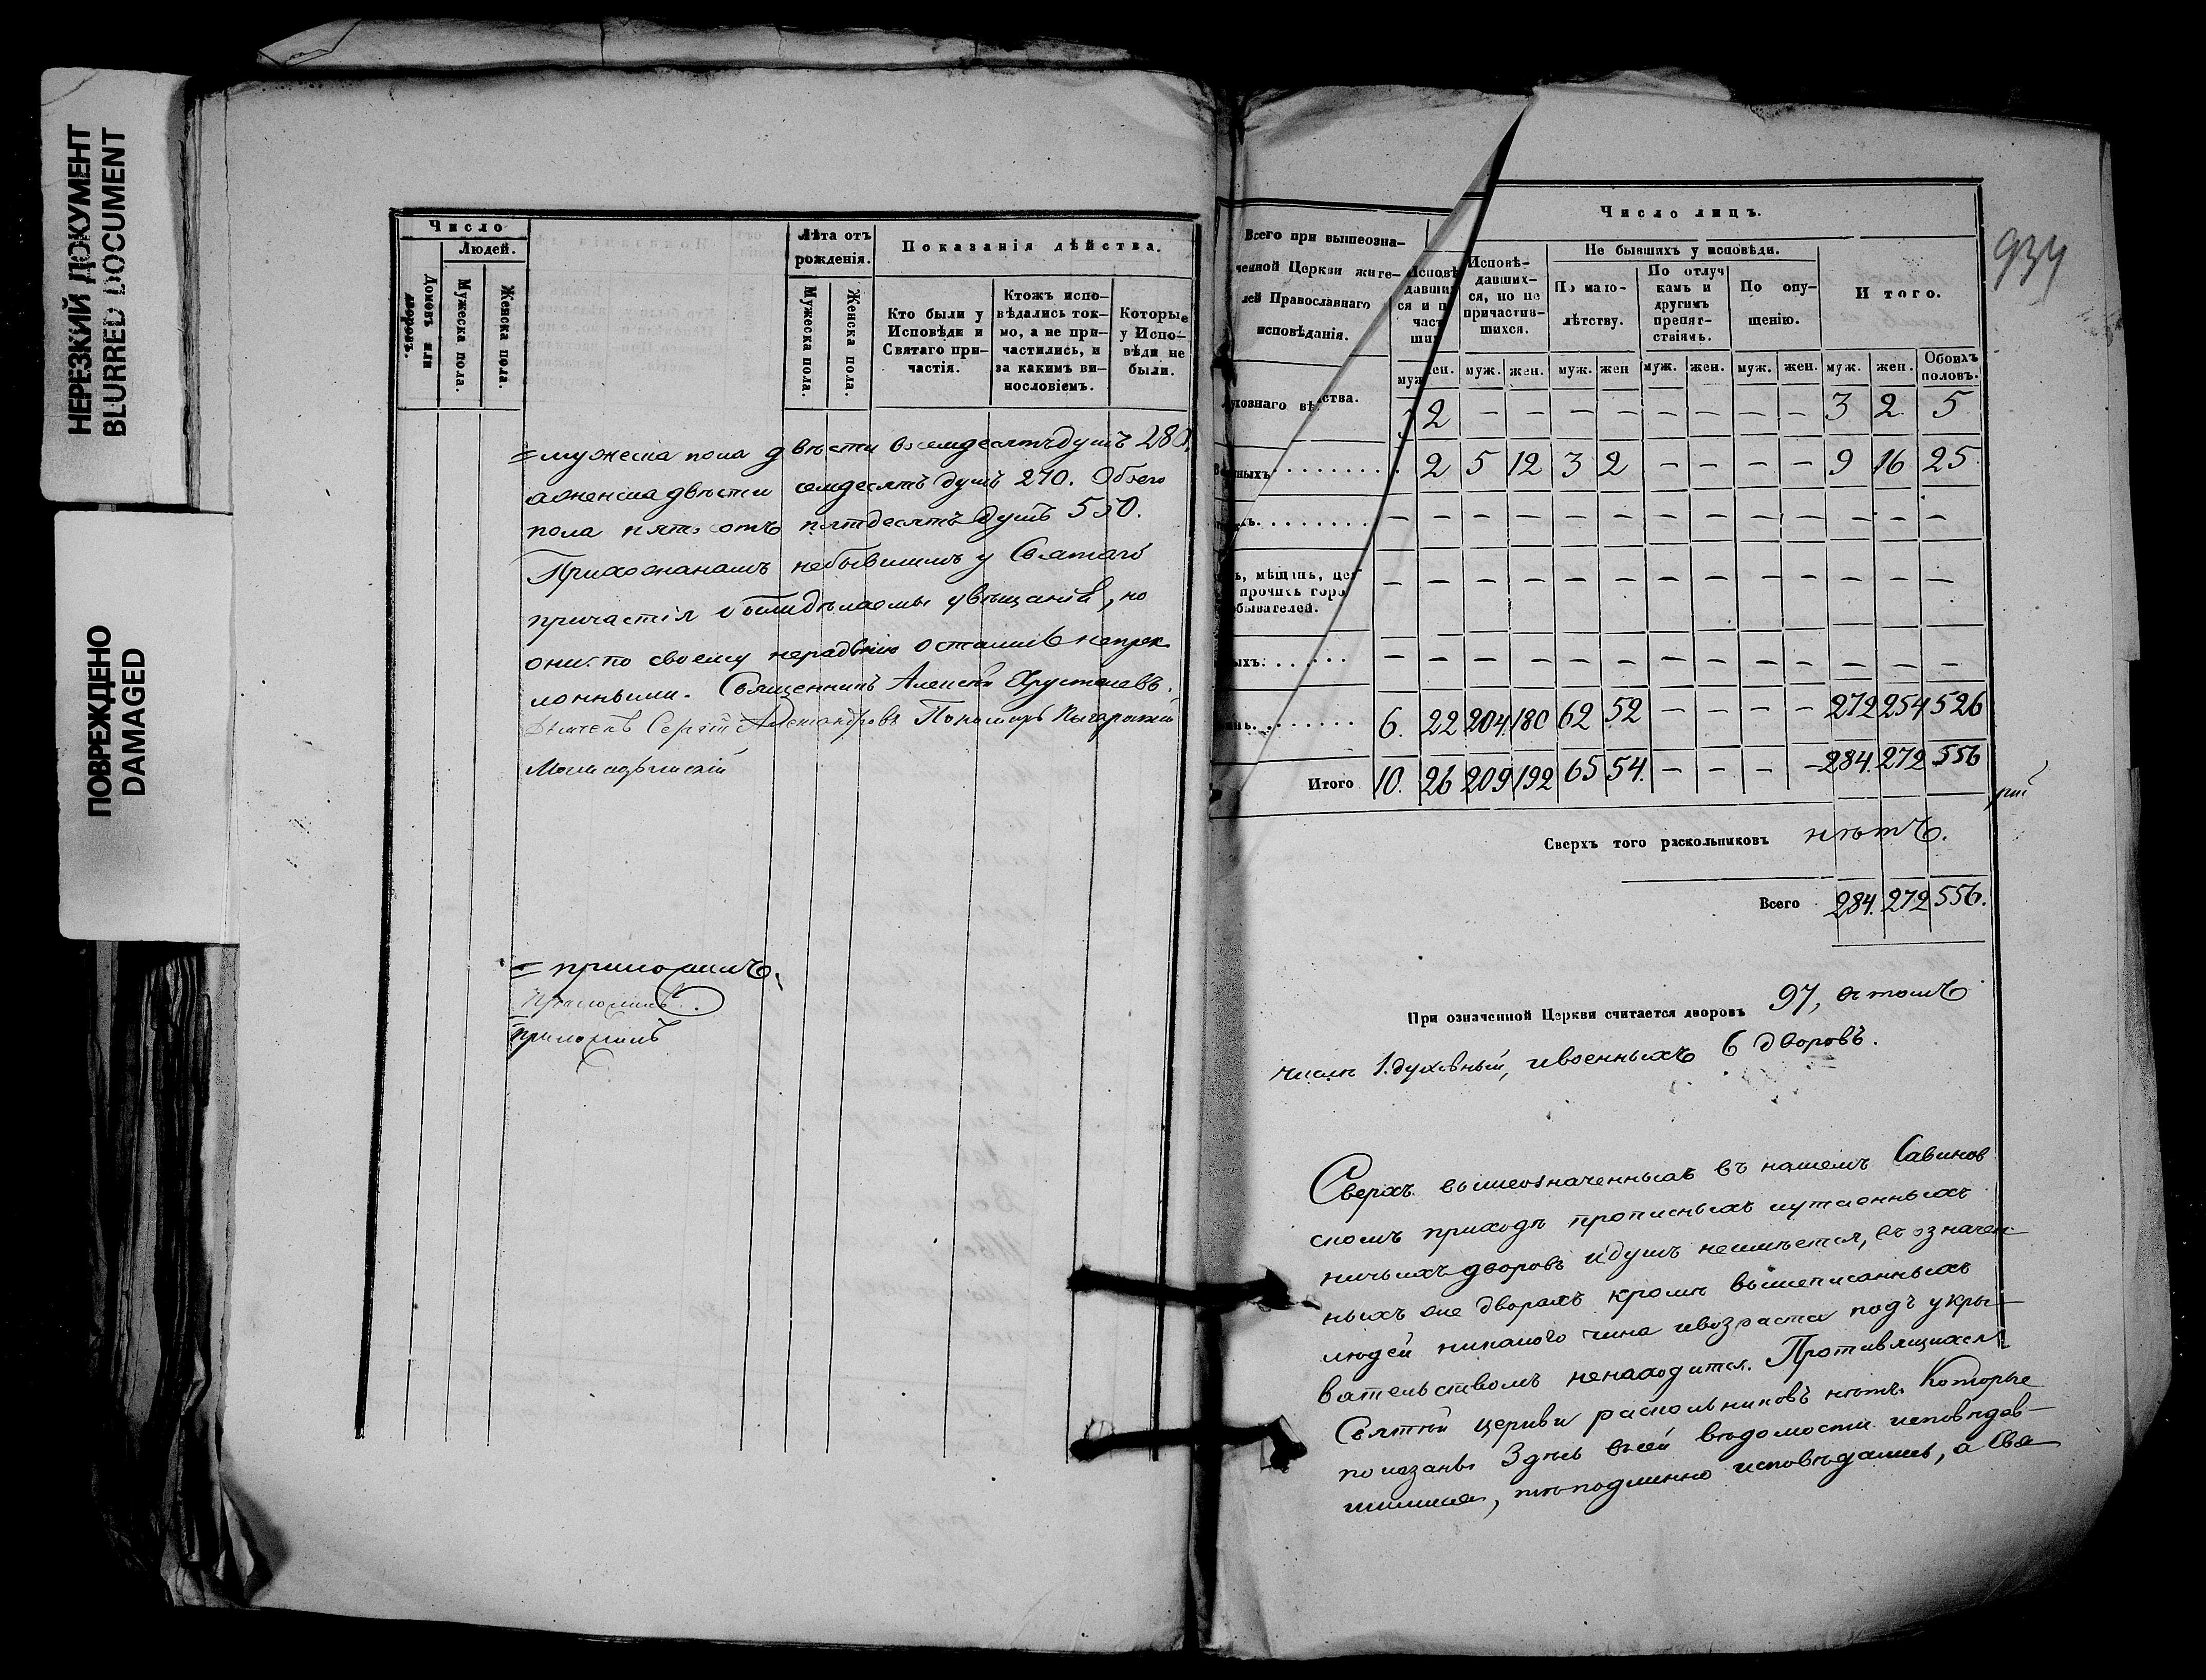 НЕРЕЗКИЙ ДОКУМЕНТ
BLURRED DOCUMENT
ПОВРЕЖДЕНО
DAMAGED
Число
Людей.
Домовъ или дворовъ.
Мужеска пола.
Женска пола.
Лѣта отъ рожденія.
Мужеска пола.
Женска пола.
Показанія дѣйства.
Кто были у Исповѣди и Святаго при-частія.
Ктожъ испо-вѣдались ток-мо, а не при-частились, и за какимъ ви-нословіемъ.
Которые у Испо-вѣди не были.
= мужеска пола двѣсти восемдесятъ душъ 280,
а женска двѣсти семдесятъ душъ 270. Обоего
пола пять сотъ пятдесятъ душъ 550.
Прихожанамъ небывшимъ у Святаго
причастія были дѣлаемы увѣщанія, но
они по своему нерадѣнію остались непрек
лонными. Священникъ Алексѣй Хрусталевъ.
Дьячекъ Сергій Александровъ Пономарь
= приложилъ.
приложилъ.
приложилъ
934
Всего при вышеозна-
ченной Церкви жите-
лей Православнаго
исповѣданія.
Число лицъ.
Исповѣ
давших
ся и п
част
ших
Исповѣ-
давших-
ся, но не
причастив-
шихся.
Не бывшихъ у исповѣди.
По мало-
лѣтству.
По отлуч
камъ и
другимъ
препят-
ствіямъ.
По опу-
щенію.
Итого.
муж жен. муж. жен. муж. жен муж. жен. муж. жен. муж. жен. Обоихъ половъ.
уховнаго вѣ ства. 2 – – – – – – – – 3 2 5
Военныхъ 2 5 12 3 2 – – – – 9 16 25
хъ – – – – – – – – – – – – –
ъ, мѣщанъ, цех
прочихъ горо
бывателей. – – – – – – – – – – – – –
ыхъ – – – – – – – – – – – – –
янъ 6. 22 204 180 62 52 – – – – 272 254 526
Итого 10. 26 209 192 65 54. – – – – 284. 272 556
Сверхъ того раскольниковъ нѣтъ.
Всего 284. 272 556.
При означенной Церкви считается дворовъ 97, въ томъ
числѣ 1. духовный, и военныхъ 6 дворовъ.
Сверхъ вышеозначенныхъ въ нашемъ Савинов
скомъ приходѣ прописныхъ и утаенныхъ
ничьихъ дворовъ и душъ неимѣется, въ означен
ныхъ же дворахъ кромѣ вышеписанныхъ
людей никакого чина и возраста подъ укры-
вательствомъ ненаходится. Противящихся
Святѣй церкви раскольниковъ нѣтъ. Которые
показаны Здѣсь въ сей вѣдомости исповѣдав-
шимися, тѣ подлинно исповѣдались, а Свя